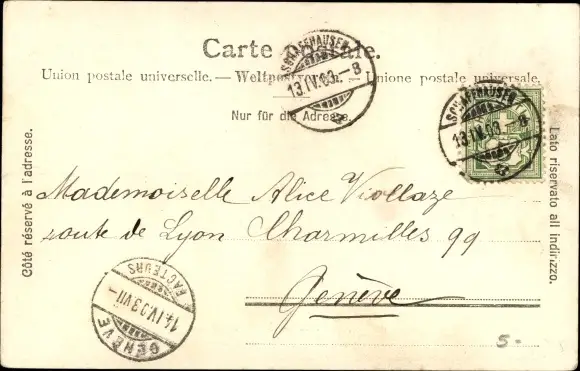 Carte Postale.
Union postale universelle. — Weltpostverein. — Unione postale universale.
Nur für die Adresse.
Côté réservé à l'adresse.
Lato riservato all indirizzo.
SCHAFFHAUSEN
13.IV.03.–8
SCHAFFHAUSEN
13.IV.03.–8
Mademoiselle Alice Viollaze
route de Lyon Charmilles 99
Genève
GENÈVE
14.IV.03.VII–
FACTEURS
5.-